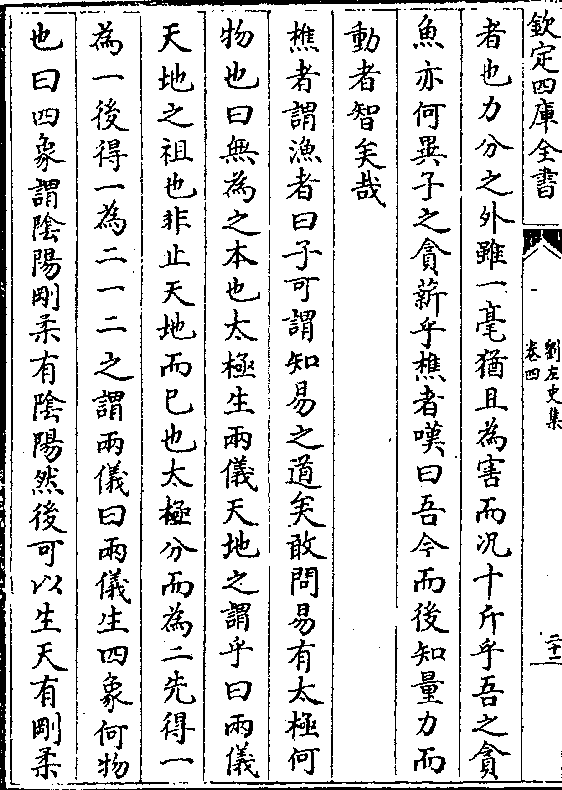 欽定四庫全書
劉左史集
卷四
二十二
者也力分之外雖一毫猶且為害而況十斤乎吾之貪
魚亦何異子之貪薪乎樵者嘆曰吾今而後知量力而
動者智矣哉
樵者謂漁者曰子可謂知易之道矣敢問易有太極何
物也曰無為之本也太極生兩儀天地之謂乎曰兩儀
天地之祖也非止天地而已也太極分而為二先得一
為一後得一為二一二之謂兩儀曰兩儀生四象何物
也曰四象謂陰陽剛柔有陰陽然後可以生天有剛柔